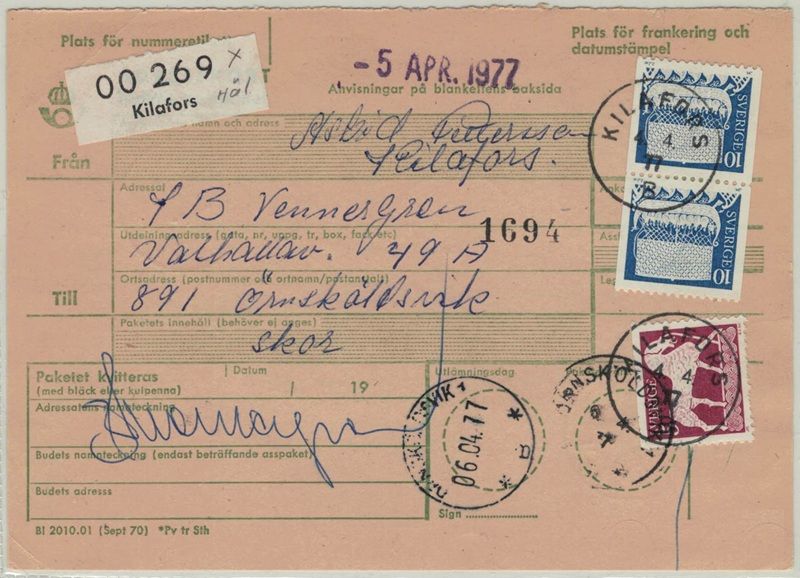 Plats för
OO 269 x
Hål
Kilafors
- 5 APR. 1977
Plats för frankering och
datumstämpel
Anvisningar på blankettens baksida
SVERIGE 10
KILAFORS
4. 4.
77
B
SVERIGE 10
namn och adress
Från
Kilafors.
Adressat
J B Vennergren
Utdelningsadress (gata, nr, uppg, tr, box, fack etc)
1694
Valhallav. 49 A
Ortsadress (postnummer och ortnamn/postanstalt)
Till
891 Örnsköldsvik
Paketets innehåll (behöver ej anges)
skor
KILAFORS
4. 4.
77
SVERIGE
Paketet kvitteras
(med bläck eller kulpenna)
Datum
/ 19
Utlämningsdag
ÖRNSKÖLDSVIK 1
06.04.77
* B *
ÖRNSKÖLDSVIK 1
Adressatens namnteckning
Budets namnteckning (endast beträffande asspaket)
Budets adress
Sign
Bl 2010.01 (Sept 70) *Pv tr Sth